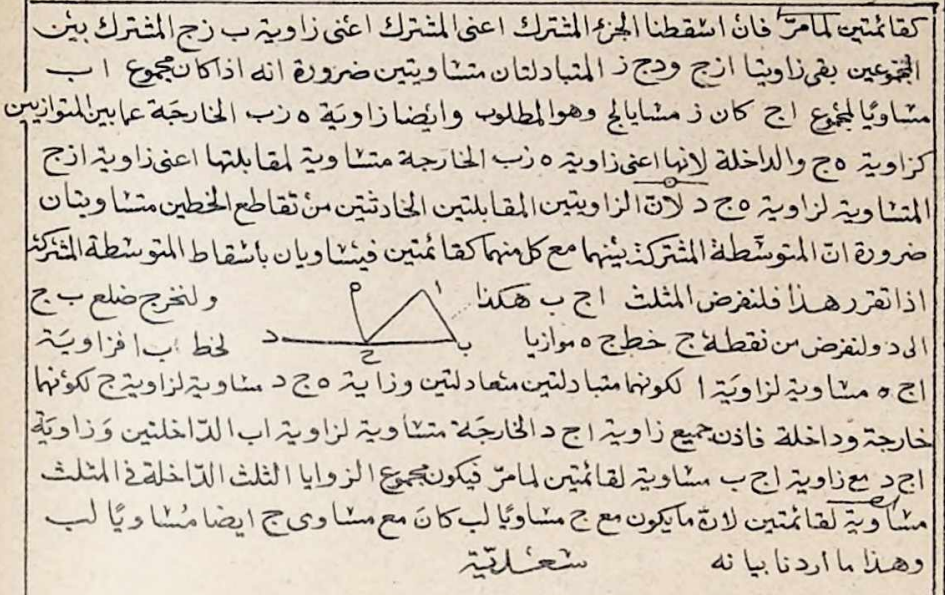 كقائمتين لمامرّ فان اسقطنا الجزء المشترك اعنى المشترك اعنى زاوية ب زج المشترك بين
المجموعين بقى زاويتا ازج ودج ز المتبادلتان متساويتين ضرورة انه اذا كان مجموع ا ب
مساويًا لمجموع اج كان ز مشايالج وهو المطلوب وايضا زاويَة ه زب الخارجَة عما بين المتوازيين
كزاوية ه ج والداخلة لانها اعنى زاوية ه زب الخارجة متساوية لمقابلتها اعنى زاوية ازج
المتساوية لزاوية ه ج د لانّ الزاويتين المقابلتين الحادثتين من تقاطع الخطين متساويتان
ضرورة انّ المتوسّطة المشتركة بينهما مع كل منهما كقائمتين فيتساويان باسقاط المتوسطة المشتركة
اذا تقرر هذا فلنفرض المثلث اج ب هكذا ا ه ولنخرج ضلع ب ج
الى د ولنفرض من نقطة ج خط ج ه موازيا ب ج د لخط ب ا فزاويَة
اج ه مساوية لزاويَة ا لكونهما متبادلتين متعادلتين وزاية ه ج د مساوية لزاوية ج لكونهما
خارجة وداخلة فاذن جميع زاوية اج د الخارجَة متساوية لزاوية اب الدّاخلتين وَزاويَة
اج د مع زاوية اج ب مساوية لقائمتين لمامرّ فيكون مجموع الزوايا الثلث الدّاخلة فى المثلث
مساوية لقائمتين لانّ مايكون مع ج مساويًا لب كانَ مع مساوى ج ايضا مُساويًا لب
وهذا ما اردنا بيانه